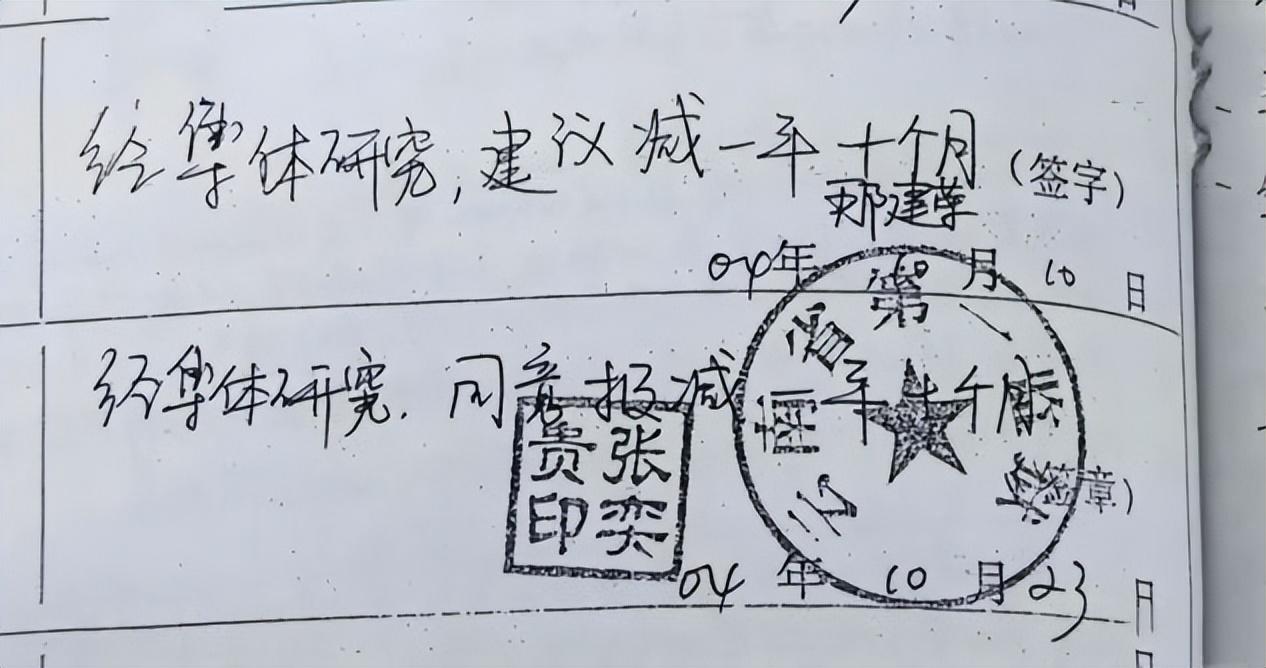 经集体研究,建议减一年十个月
(签字)
邢建荣
04年10月10日
经集体研究.同意报减一年十个月
张奕贵印
云南省第一监狱
(签章)
04年10月23日